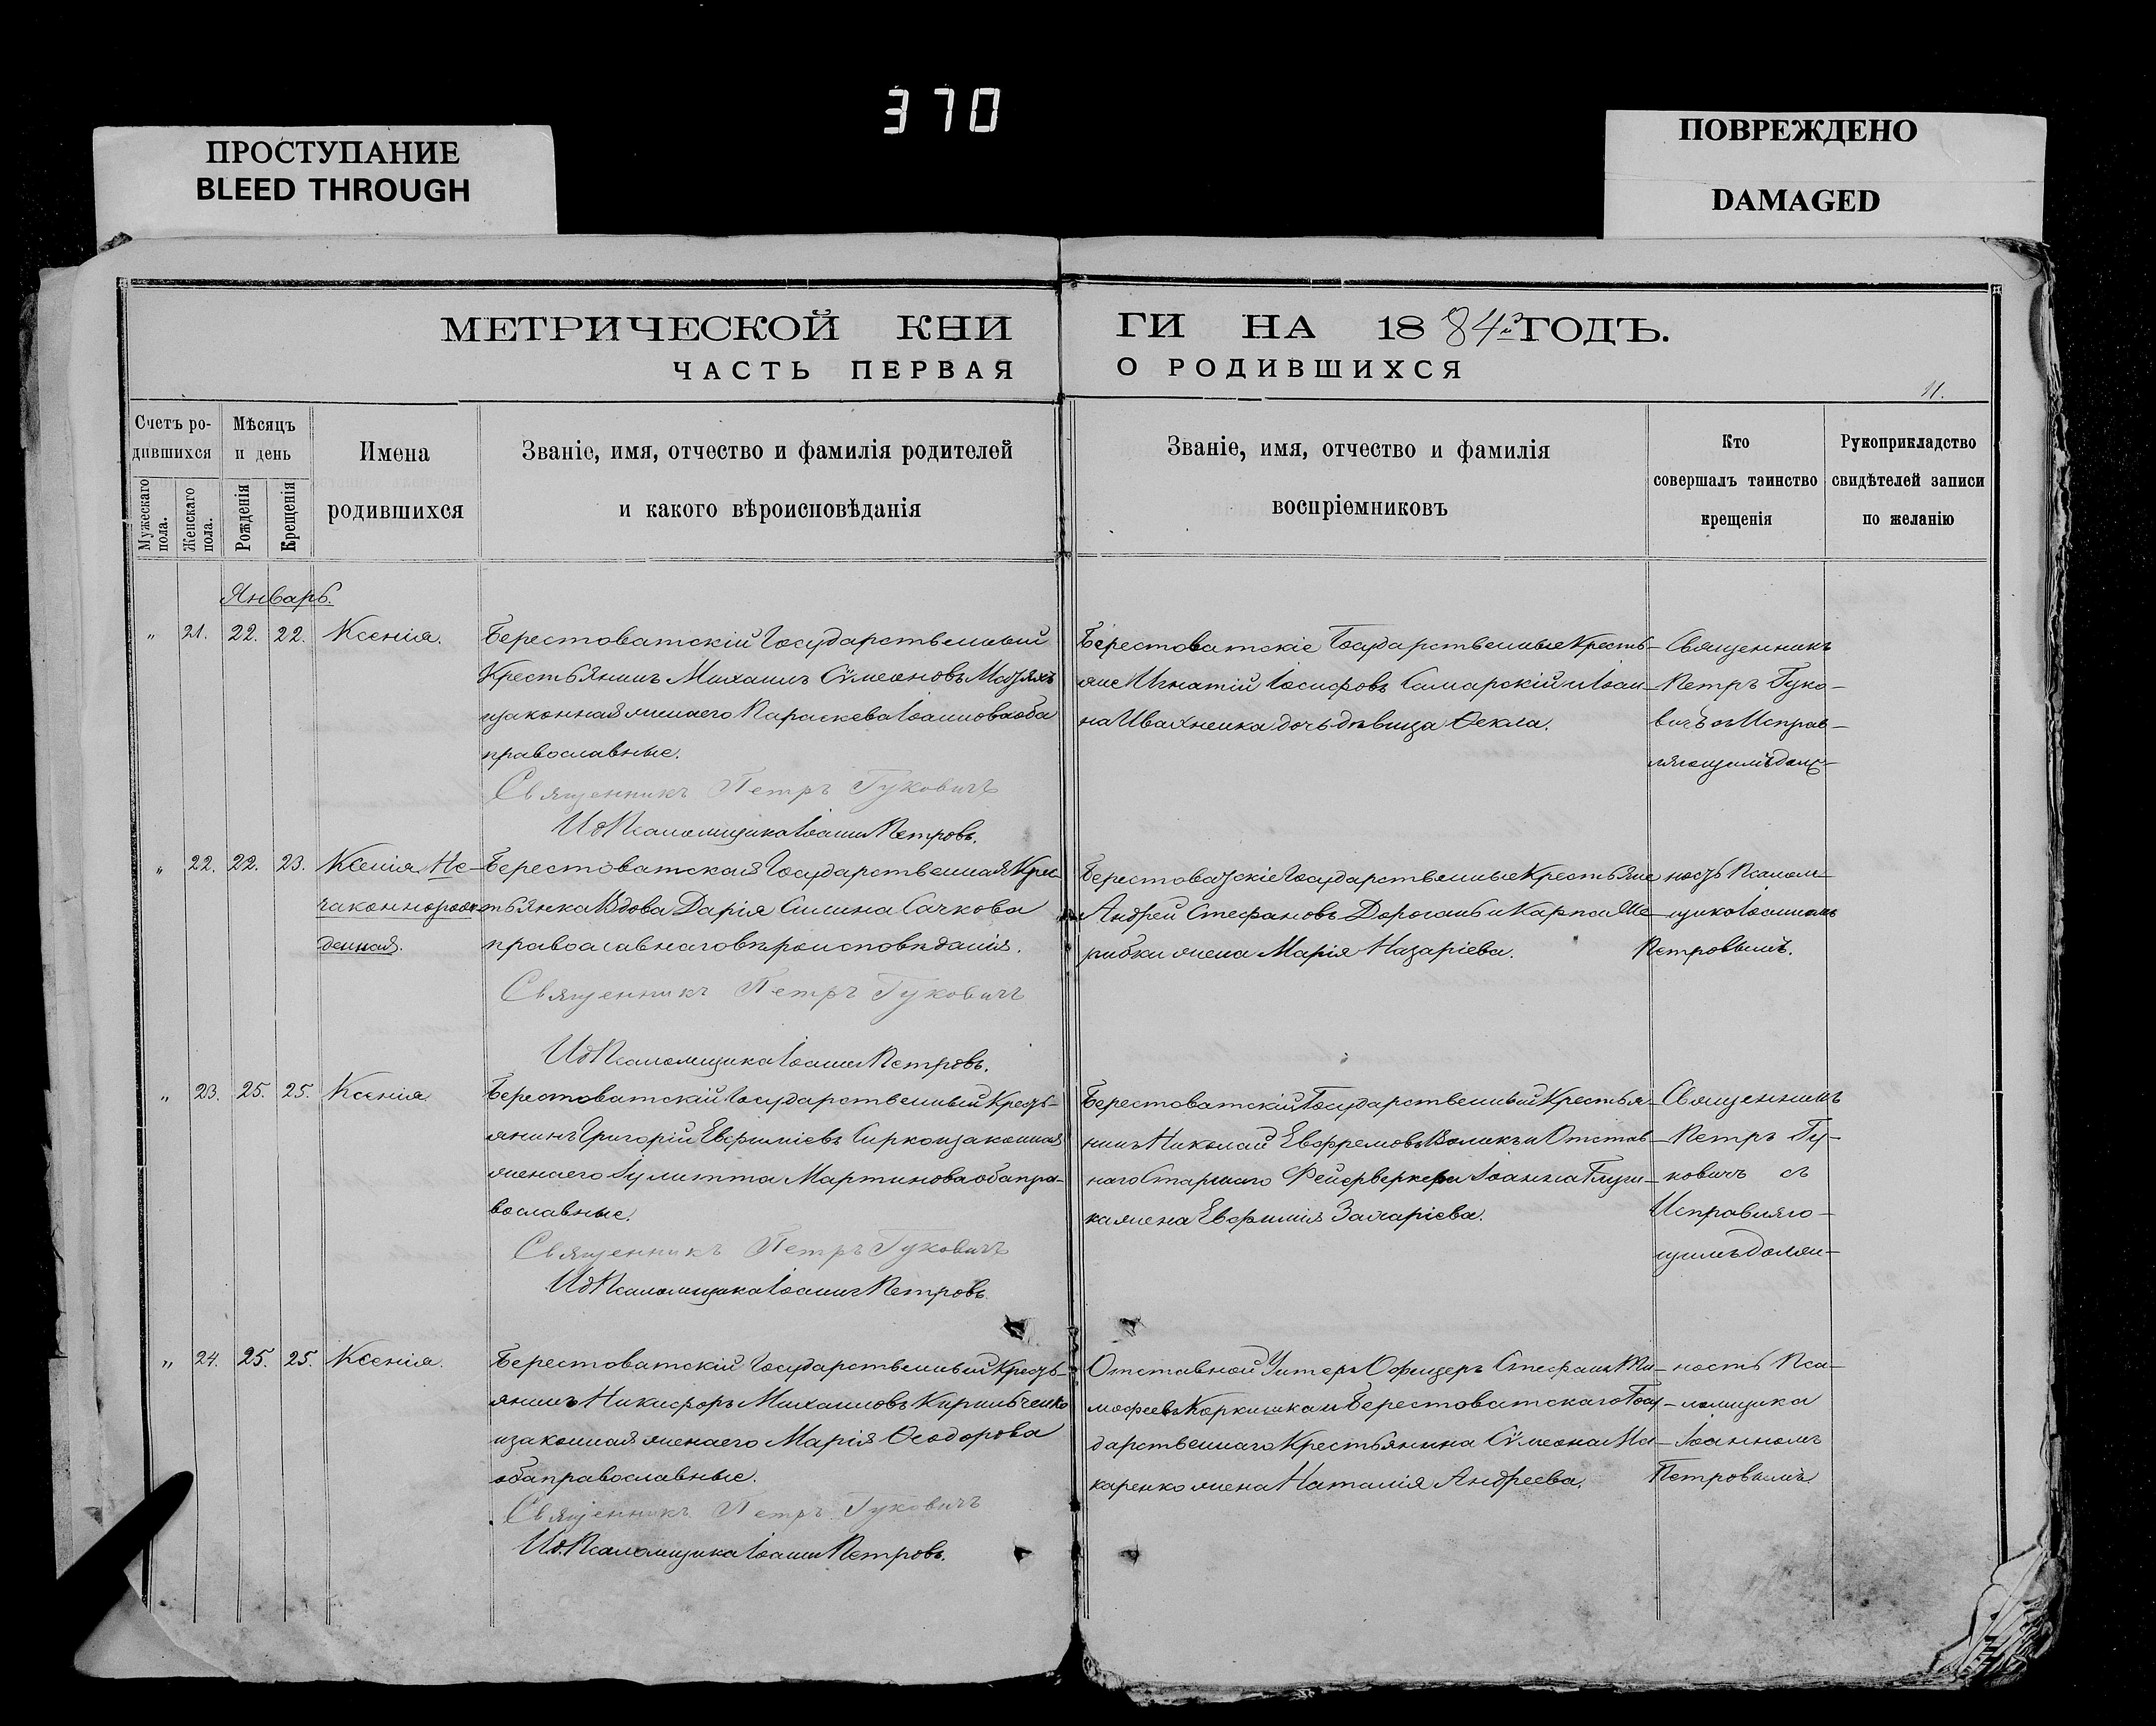 370
ПРОСТУПАНИЕ
BLEED THROUGH
ПОВРЕЖДЕНО
DAMAGED
МЕТРИЧЕСКОЙ КНИ
ГИ НА 1884й ГОДЪ.
ЧАСТЬ ПЕРВАЯ
О РОДИВШИХСЯ
11.
Счетъ ро-
дившихся
Мужескаго пола.
Женскаго пола.
Мѣсяцъ
и день
Рожденія
Крещенія
Имена
родившихся
Званіе, имя, отчество и фамилія родителей
и какого вѣроисповѣданія
Званіе, имя, отчество и фамилія
воспріемниковъ
Кто
совершалъ таинство
крещенія
Рукоприкладство
свидѣтелей записи
по желанію
Январь.
" 21. 22. 22. Ксенія.
Берестоватскій Государственный
Крестьянинъ Михаилъ Сѵмеоновъ
изаконная женаего Параскева Іоанноваоба
православные.
Священникъ Петръ Гуковичъ
ИдПсаломщика Іоаннъ Петровъ.
Берестоватскіе Государственные Кресть-
яне Игнатій Іосифовъ Самарскій и Іоан-
на Ивахненка дочь дѣвица Ѳекла.
Священникъ
Петръ Гуко-
вичъ съ Исправ-
ляющимъ долж-
" 22. 22. 23. Ксенія Не-
законнорож-
денная.
Берестоватская Государственная Крес-
тьянка Вдова Дарія Силина Сачкова
православнаго вѣроисповѣданія.
Священникъ Петръ Гуковичъ
ИдПсаломщика Іоаннъ Петровъ.
Берестоватскіе Государственные Крестьяне
Андрей Стефановъ Дорогань и Карпа Ше-
рибки жена Марія Назаріева.
ность Псалом-
щика Іоанномъ
Петровымъ.
" 23. 25. 25. Ксенія
Берестоватскій Государственный Кресть-
янинъ Григорій Евфиміевъ Сирко изаконная
женаего Іулитта Мартиноваобапра-
вославные.
Священникъ Петръ Гуковичъ
ИдПсаломщика Іоаннъ Петровъ
Берестоватскій Государственный Крестья-
нинъ Николай Евфремовъ Воликъ и Отстав-
наго Старшаго Фейерверкера Іоанна Глущ-
ка жена Евфимія Захаріева.
Священникъ
Петръ Гу-
ковичъ съ
Исправляю-
щимъ долж-
" 24. 25. 25. Ксенія.
Берестоватскій Государственный Кресть-
янинъ Никифоръ Михаиловъ Кирильченко
изаконная женаего Марія Ѳеодорова
обаправославные.
Священникъ Петръ Гуковичъ
Ид.Псаломщика Іоаннъ Петровъ.
Отставной Унтеръ Офицеръ Стефанъ Ти-
мофеевъ Коркишка и Берестоватскаго Госу-
дарственнаго Крестьянина Сѵмеона Ма-
каренко жена Наталія Андреева.
ность Пса-
ломщика
Іоанномъ
Петровымъ